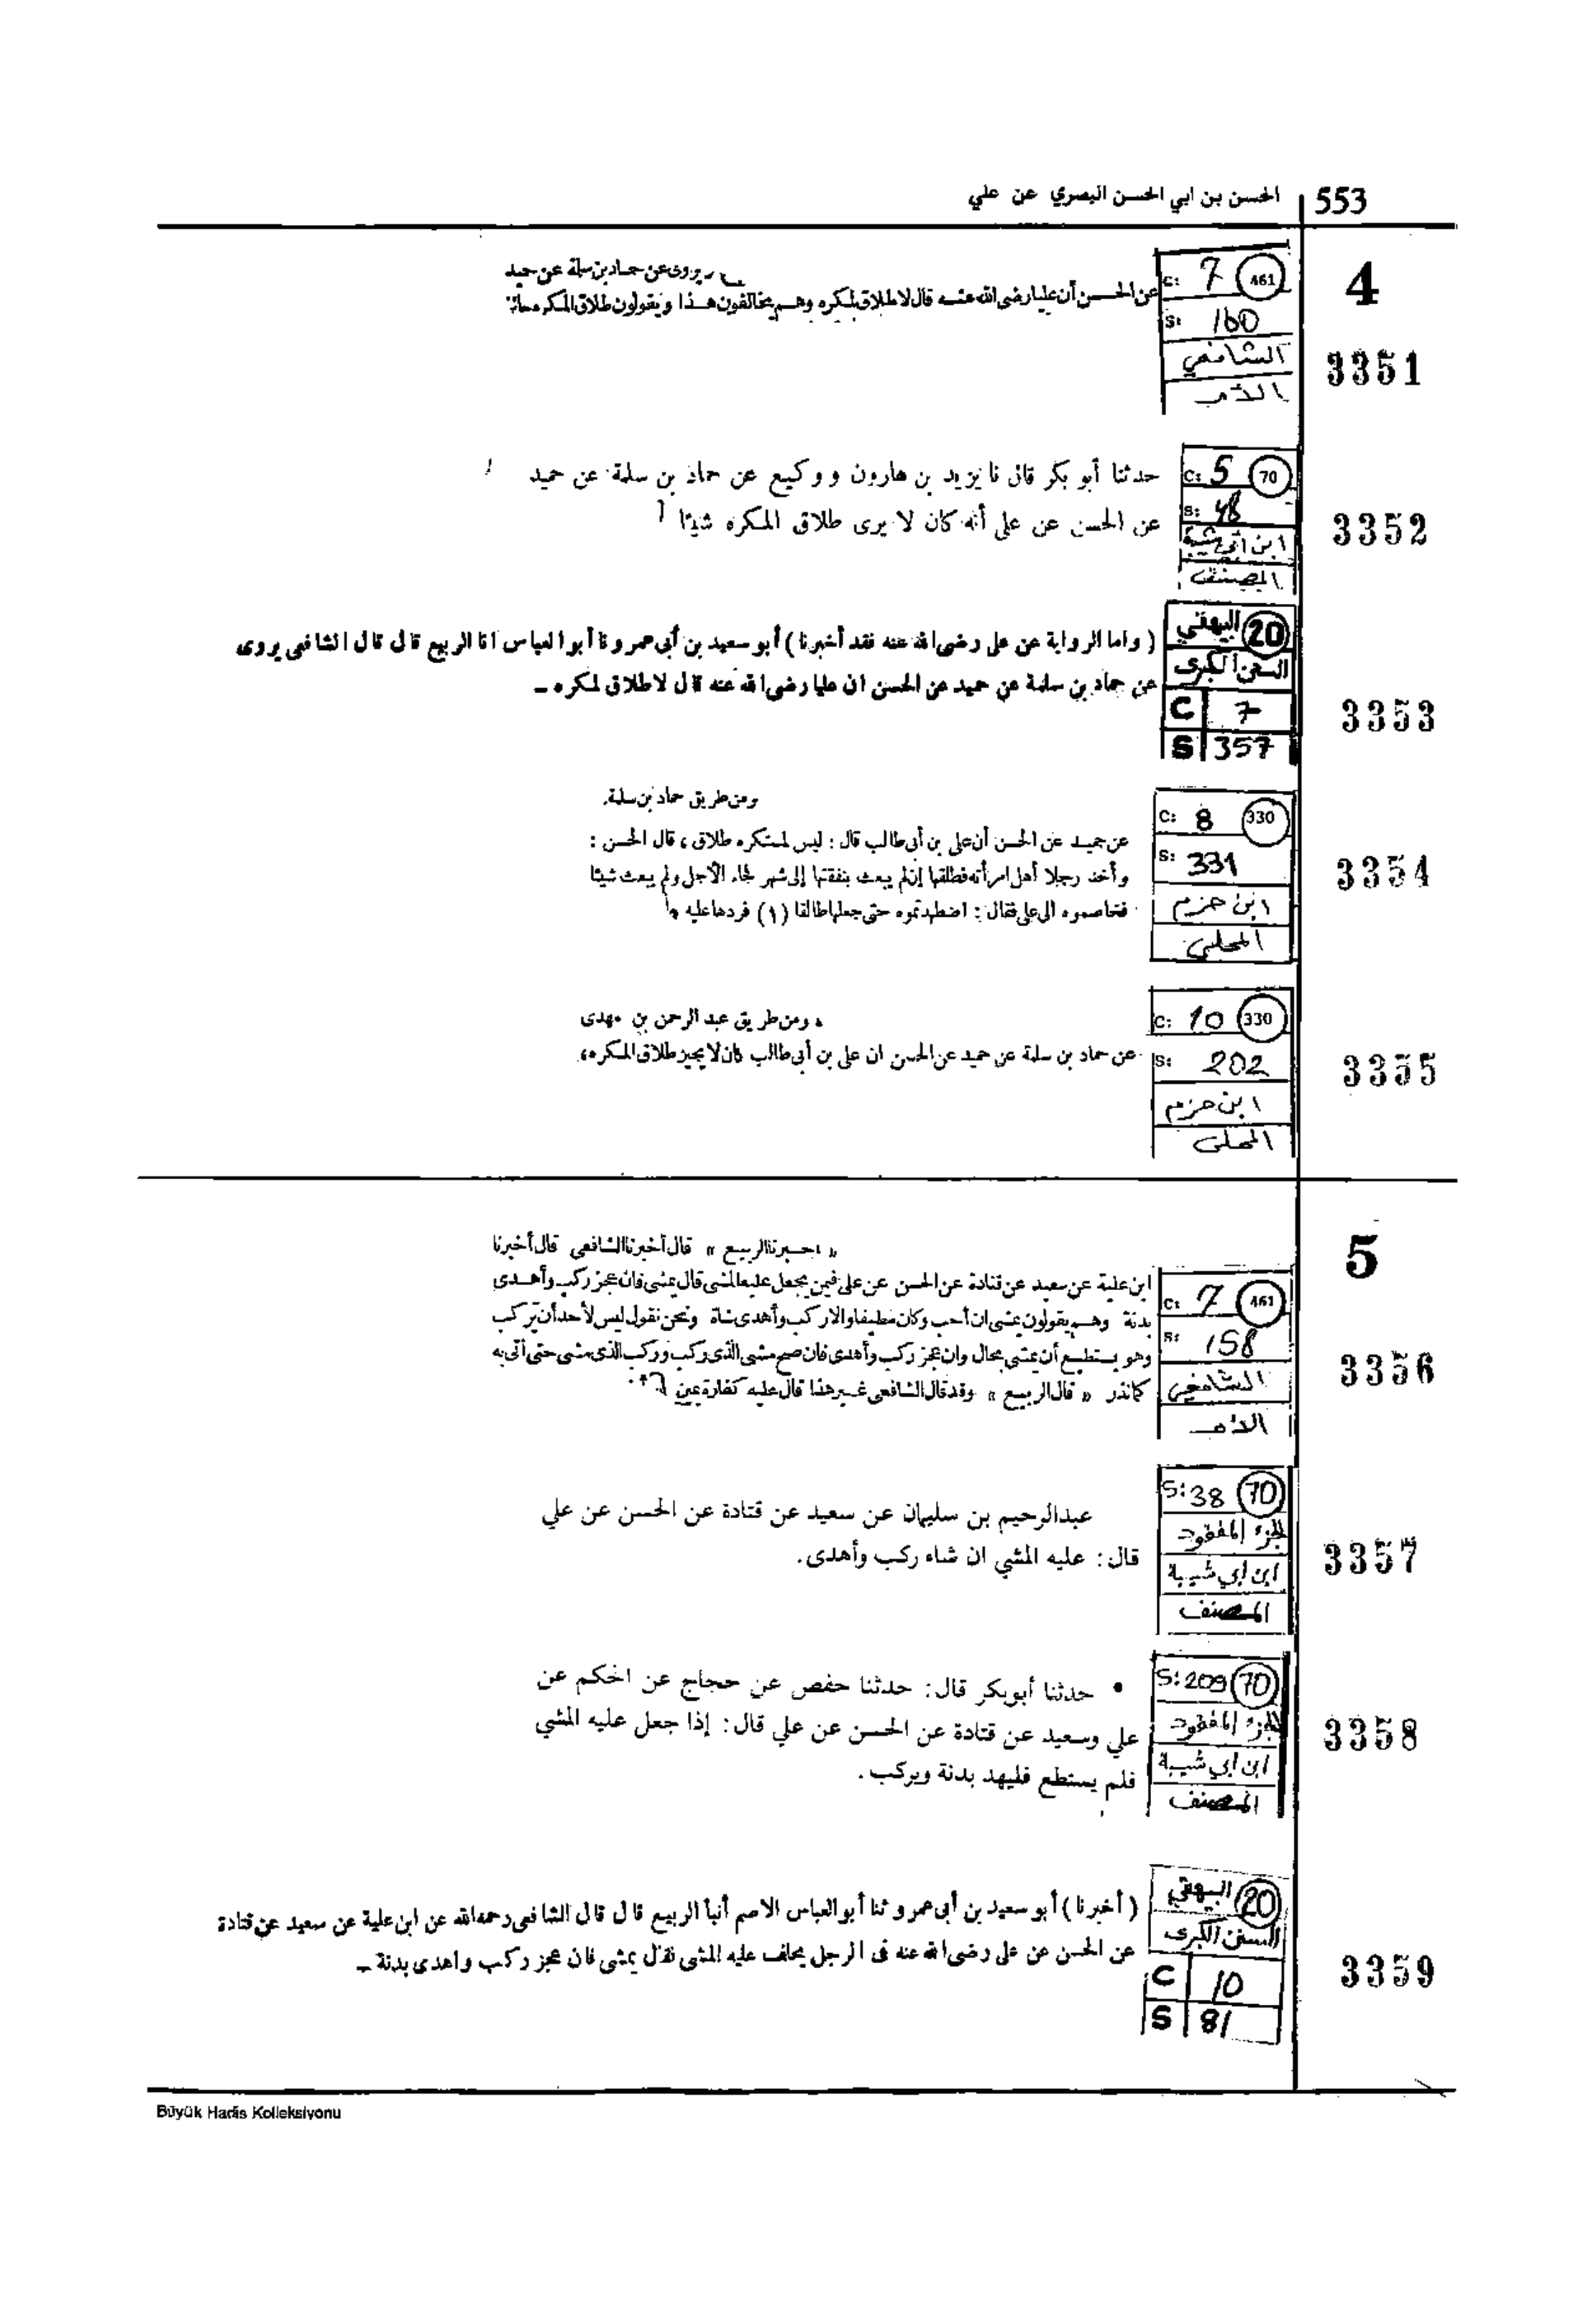 553 الحسن بن ابي الحسن البصري عن علي
4
C: 7 461
S: 160
الشافعي
الأم
3351
يروى عن حماد بن سلمة عن حميد
عن الحسن أن عليا رضى الله عنه قال لا طلاق لمكره وهم يخالفون هذا ويقولون طلاق المكره
C: 5 70
S: 48
ابن ابي شيبة
المصنف
3352
حدثنا أبو بكر قال نا يزيد بن هارون ووكيع عن حماد بن سلمة عن حميد
عن الحسن عن على أنه كان لا يرى طلاق المكره شيئا
20 البيهقي
السنن الكبرى
C 7
S 357
3353
( واما الرواية عن على رضى الله عنه فقد أخبرنا ) أبو سعيد بن أبى عمرو نا أبو العباس انا الربيع قال قال الشافعى يروى
عن حماد بن سلمة عن حميد عن الحسن ان عليا رضى الله عنه قال لا طلاق لمكره ــ
C: 8 330
S: 331
ابن حزم
المحلى
3354
ومن طريق حماد بن سلمة
عن حميد عن الحسن أن على بن أبى طالب قال : ليس لمستكره طلاق ، قال الحسن :
وأخذ رجلا أهل امرأته فطلقها إن لم يبعث بنفقتها إلى شهر فجاء الأجل ولم يبعث شيئا
فخاصموه الى على فقال : اضطهدتموه حتى جعلها طالقا (١) فردها عليه
C: 10 330
S: 202
ابن حزم
المحلى
3355
، ومن طريق عبد الرحمن بن مهدى
عن حماد بن سلمة عن حميد عن الحسن ان على بن أبى طالب كان لا يجيز طلاق المكره ،
5
C: 7 461
S: 158
الشافعي
الأم
3356
« اخبرنا الربيع » قال أخبرنا الشافعى قال أخبرنا
ابن علية عن سعيد عن قتادة عن الحسن عن على فيمن يجعل عليه المشى قال يمشى فان عجز ركب وأهدى
بدنة وهم يقولون يمشى ان أحب وكان مطيقا والا ركب وأهدى شاة ونحن نقول ليس لأحد أن يركب
وهو يستطيع أن يمشى بحال وان عجز ركب وأهدى فان صح مشى الذى ركب وركب الذى مشى حتى أتى به
كما نذر « قال الربيع » وقد قال الشافعى غير هذا قال عليه كفارة يمين
S: 38 70
الجزء المفقود
ابن ابي شيبة
المصنف
3357
عبدالرحيم بن سليمان عن سعيد عن قتادة عن الحسن عن علي
قال : عليه المشي ان شاء ركب وأهدى.
S: 209 70
الجزء المفقود
ابن ابي شيبة
المصنف
3358
• حدثنا أبوبكر قال: حدثنا حفص عن حجاج عن الحكم عن
علي وسعيد عن قتادة عن الحسن عن علي قال: إذا جعل عليه المشي
فلم يستطع فليهد بدنة ويركب .
20 البيهقي
السنن الكبرى
C 10
S 81
3359
( أخبرنا ) أبو سعيد بن أبى عمرو ثنا أبو العباس الاصم أنبأ الربيع قال قال الشافعى رحمه الله عن ابن علية عن سعيد عن قتادة
عن الحسن عن على رضى الله عنه فى الرجل يحلف عليه المشى فقال يمشى فان عجز ركب واهدى بدنة ــ
Büyük Hadis Kolleksiyonu